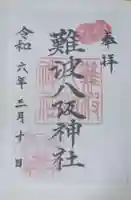 奉拝
難波八阪神社
令和六年三月十日